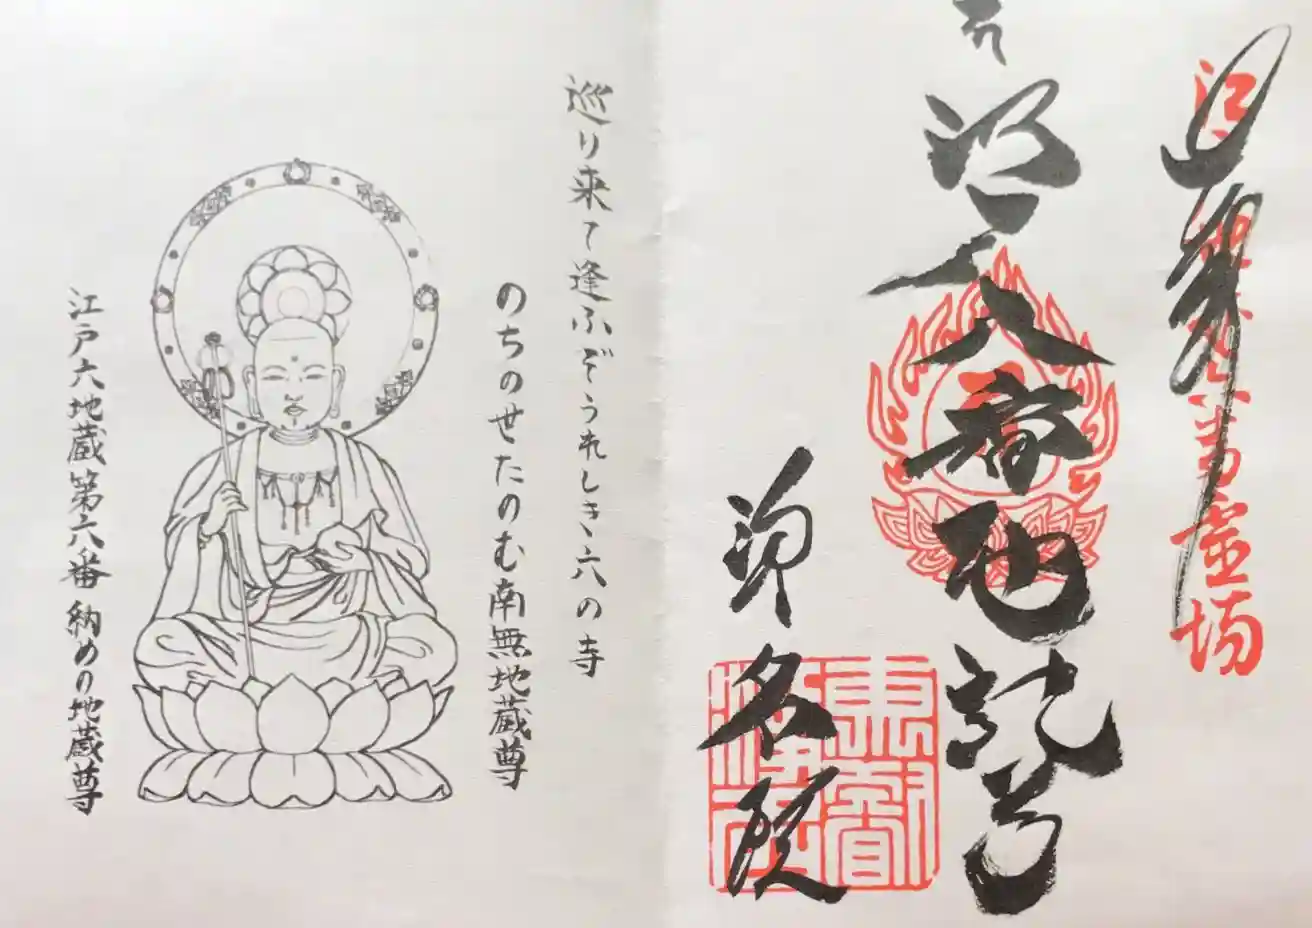 奉拝
霊場
江戸六番地蔵尊
浄名院
巡り来て逢ふぞうれしき六の寺
のちのせたのむ南無地蔵尊
江戸六地蔵第六番 納めの地蔵尊